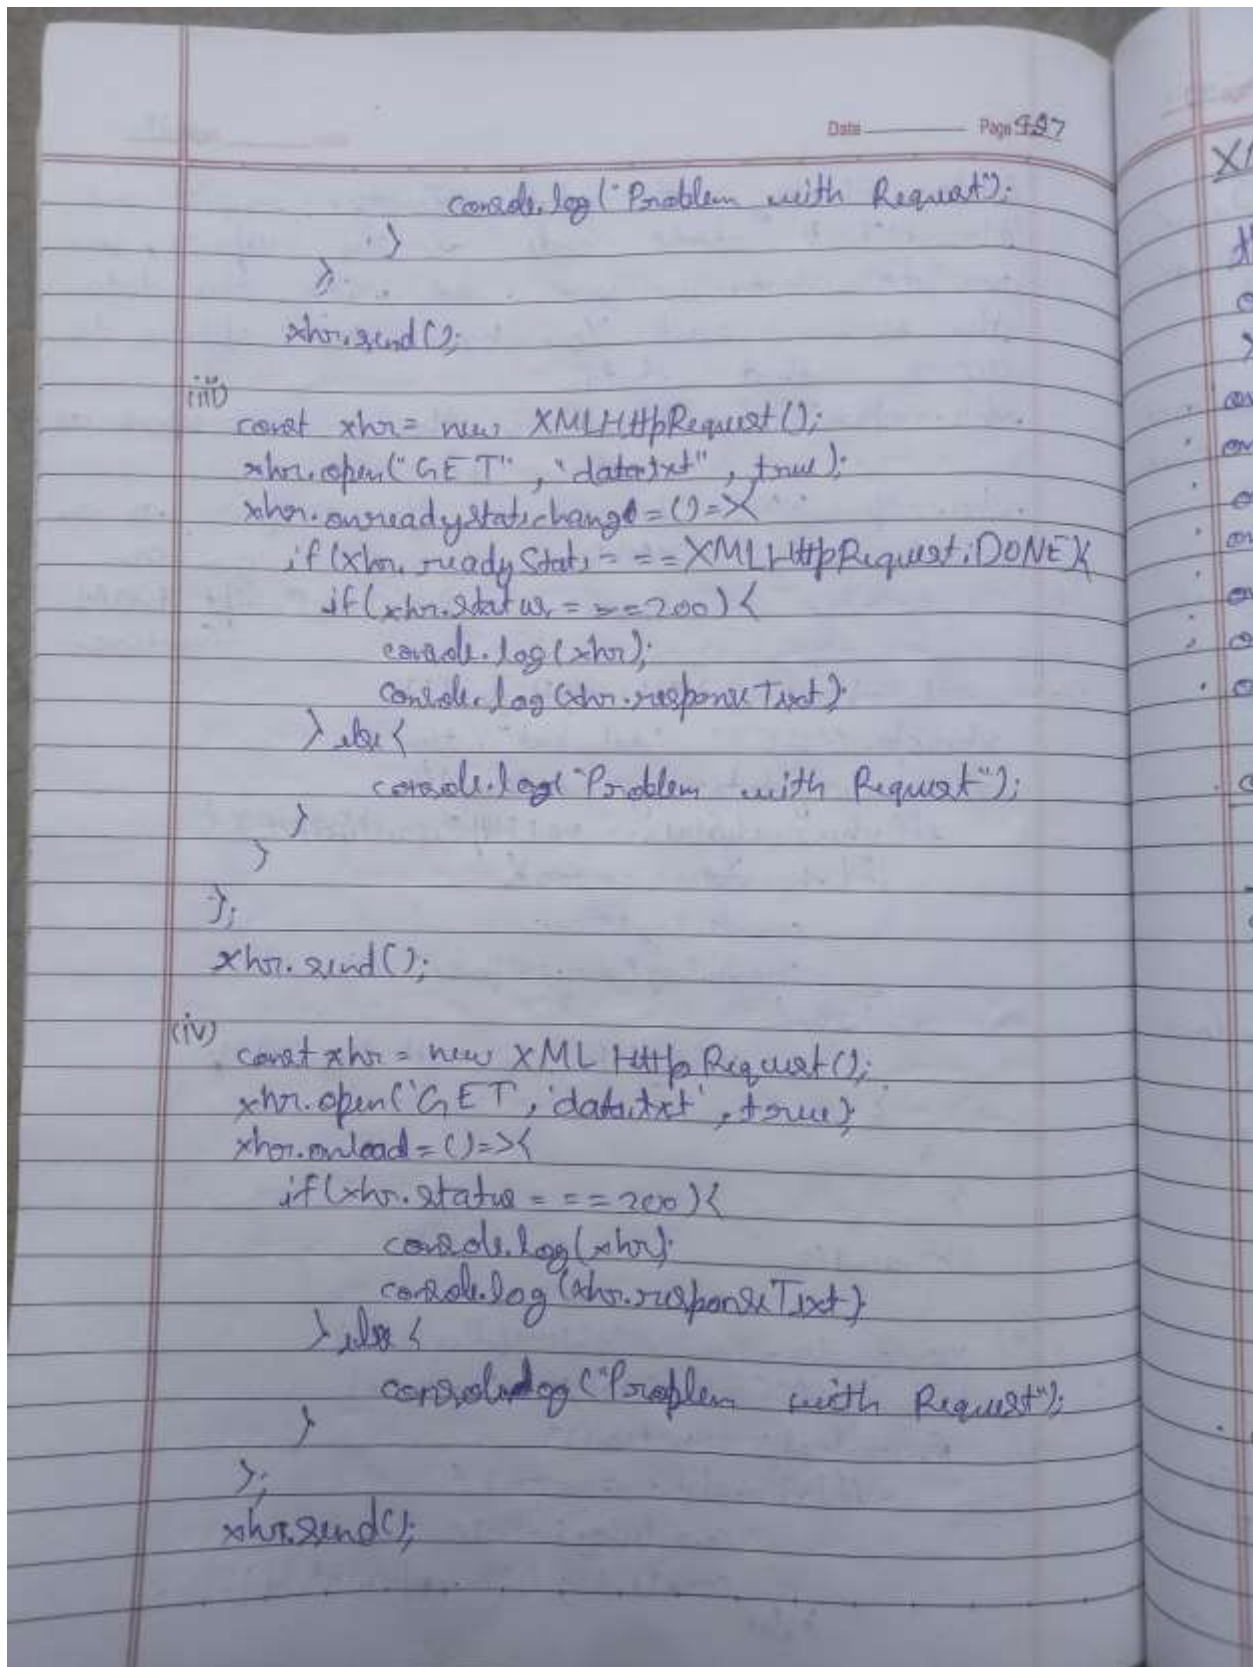 Date Page 997
console.log("Problem with Request");
}
};
xhr.send();
iii)
const xhr = new XMLHttpRequest();
xhr.open("GET", "data.txt", true);
xhr.onreadystatechange = () => {
if(xhr.readyState === XMLHttpRequest.DONE){
if(xhr.status === 200){
console.log(xhr);
console.log(xhr.responseText);
} else {
console.log("Problem with Request");
}
}
};
xhr.send();
(iv)
const xhr = new XMLHttpRequest();
xhr.open('GET', 'data.txt', true);
xhr.onload = () => {
if(xhr.status === 200){
console.log(xhr);
console.log(xhr.responseText);
} else {
console.log("Problem with Request");
}
};
xhr.send();